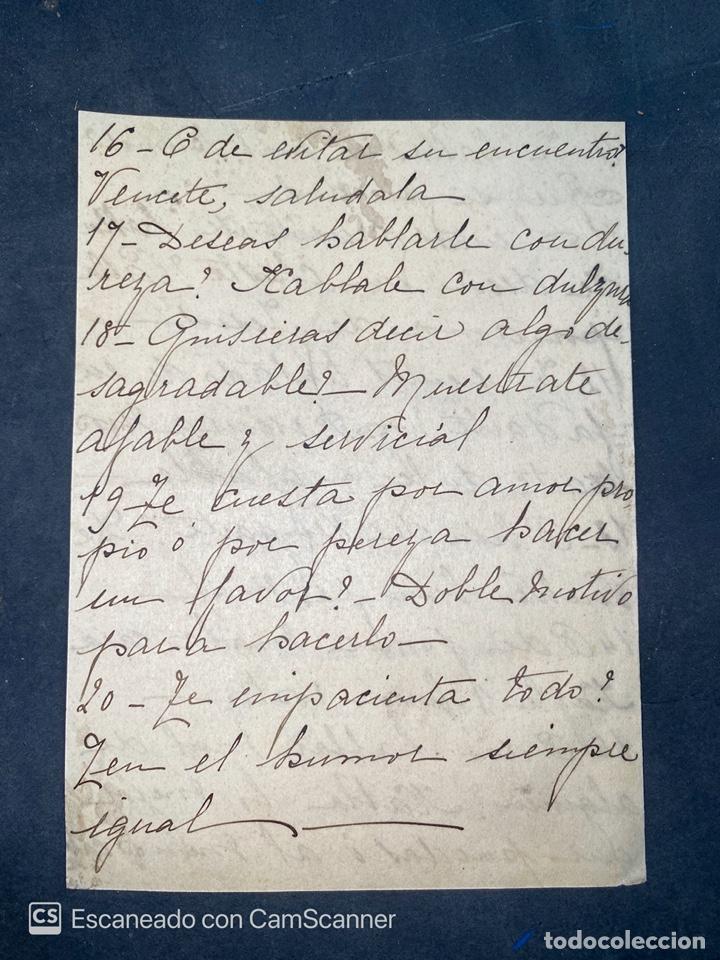 16 - O de evitar su encuentro?
Vencete, saludala
17 - Deseas hablarle con du-
reza? Hablale con dulzura
18 - Quisieras decir algo de-
sagradable? - Muestrate
afable y servicial
19 Te cuesta por amor pro
pio ó por pereza hacer
un favor? - Doble motivo
para hacerlo -
20 - Te impacienta todo?
Ten el humor siempre
igual
CS Escaneado con CamScanner
todocoleccion